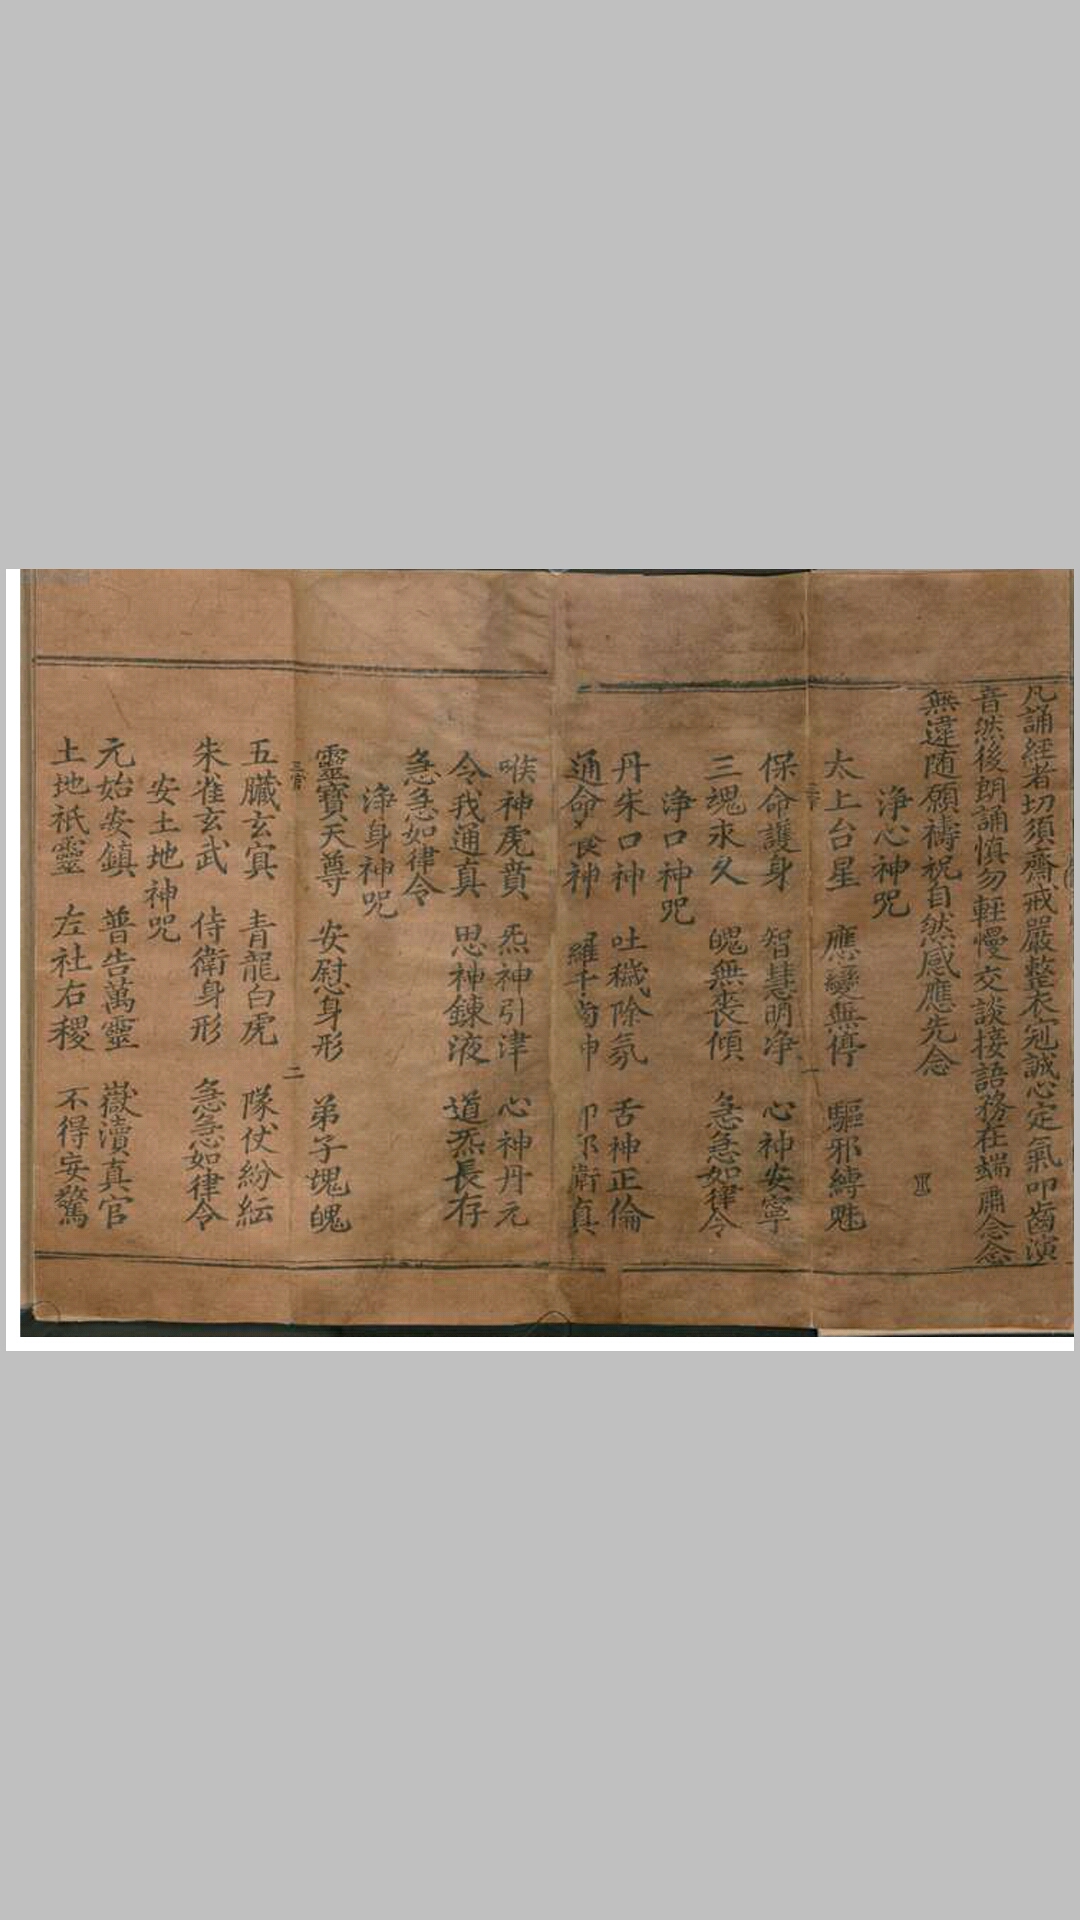 凡誦經者切須齋戒嚴整衣冠誠心定氣叩齒演
音然後朗誦慎勿輕慢交談接語務在端肅念念
無違随願禱祝自然感應先念
淨心神咒
太上台星 應變無停 驅邪縛魅
保命護身 智慧明净 心神安寧
三魂永久 魄無喪傾 急急如律令
淨口神咒
丹朱口神 吐穢除氛 舌神正倫
通命 神 羅千 神 衛真
喉神虎賁 炁神引津 心神丹元
令我通真 思神鍊液 道炁長存
急急如律令
淨身神咒
靈寶天尊 安慰身形 弟子魂魄
五臟玄㝠 青龍白虎 隊仗紛紜
朱雀玄武 侍衛身形 急急如律令
安土地神咒
元始安鎮 普告萬靈 嶽瀆真官
土地祇靈 左社右稷 不得妄驚
一
二